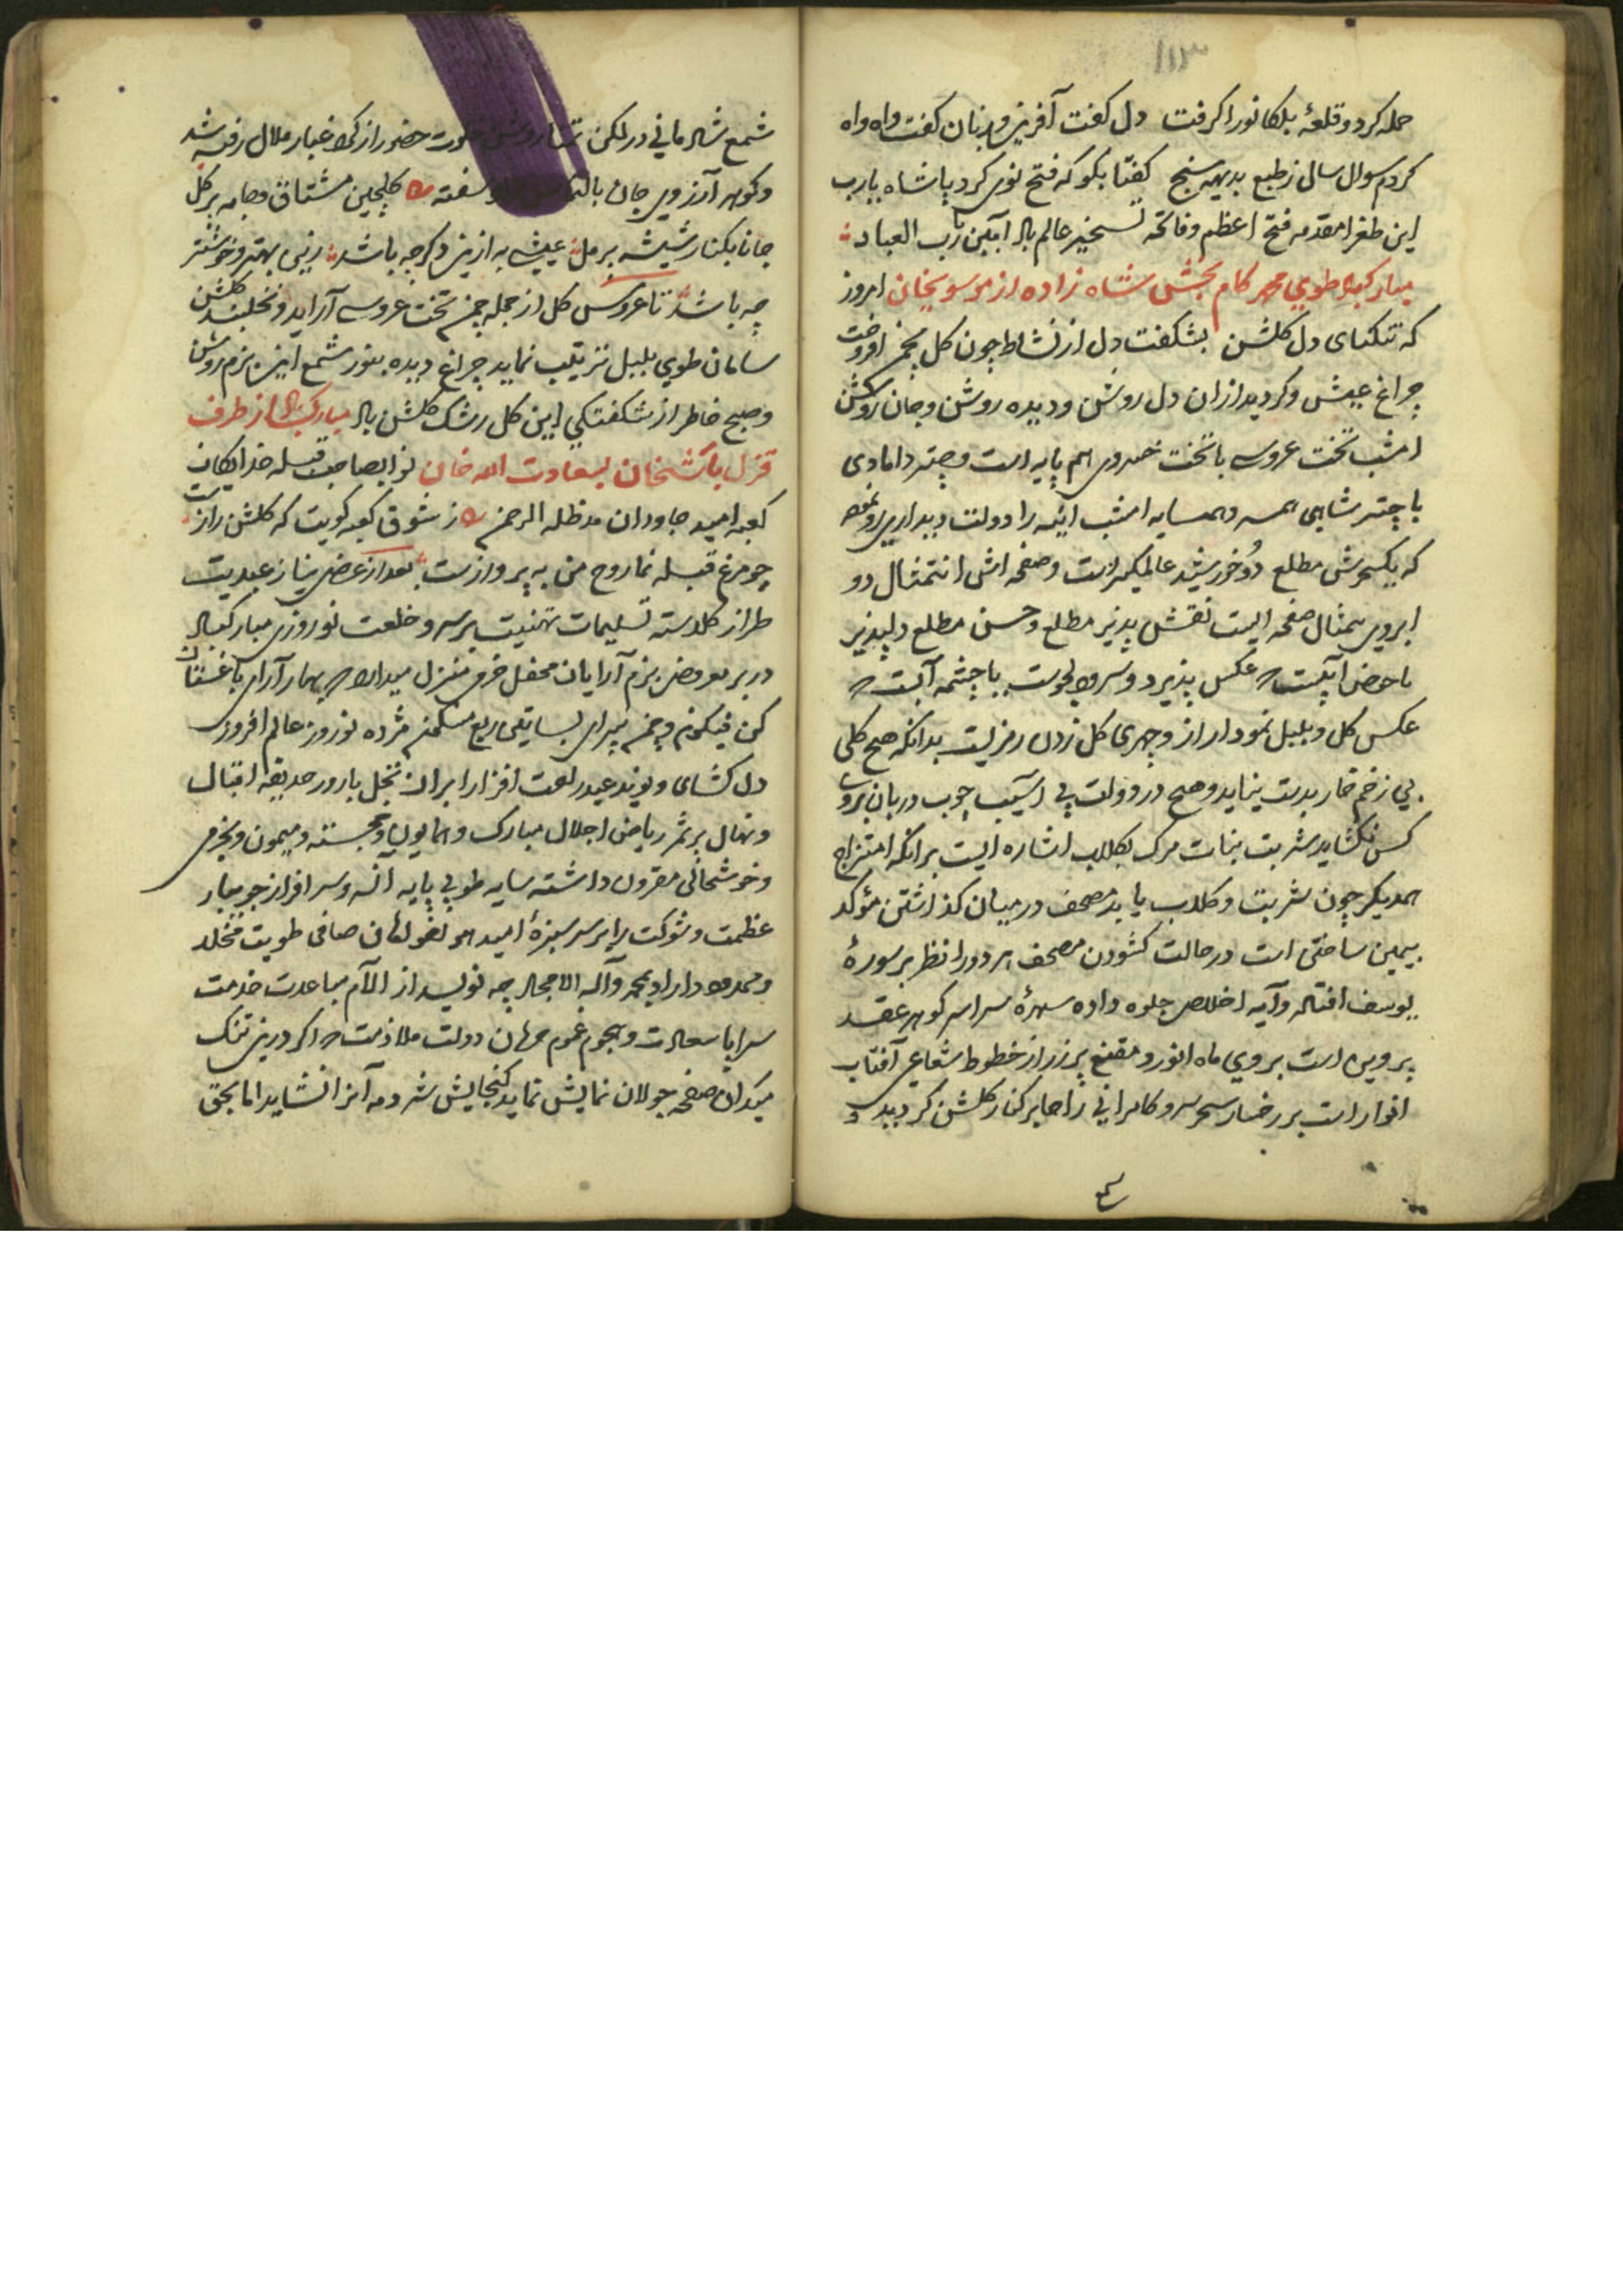 ۱۱۳
حمله کرد و قلعهٔ بلکانور را کرفت دل کفت آفرین و زبان کفت واه واه
کردم سوال سال ز طبع بدیهه سنج کفتا بکو که فتح نوی کرد پاشاه یارب
این طغرا مقدمه فتح اعظم و فاتحه تسخیر عالم باد آمین یا رب العباد
مبارکباد طوی محمد کام بخش شاه زاده از موسویخان امروز
که تنکنای دل کلشن بشکفت دل از نشاط چون کل بچمن افروخت
چراغ عیش و کردید ازان دل روشن و دیده روشن و جان روشن
امشب تخت عروسی با تخت خسروی هم پایه است و چتر دامادی
با چتر شاهی همسر و همسایه امشب آئینه را دولت دیداری رو نموده
که یکسرش مطلع دو خورشید عالمکیر است و صفحه اش تمثال دو
ابروی بیمثال صفحه ایست نقش پذیر مطلع و حسن مطلع دلپذیر
با حوض آبیست عکس پذیر دو سرو دلجوست یا چشمه آبست
عکس کل و بلبل نمودار از و چهری کل زدن رمزیست بدانکه هیچ کلی
بی زخم خار بدست نیاید و هیچ در دولت بی آسیب چوب دربان بروی
کس نکشاید شربت نبات مرک بکلاب اشاره ایست برانکه امتزاج
همدیکر چون شربت و کلاب باید مصحف درمیان کذاشتن مؤکد
بیمین ساختی است در حالت کشودن مصحف هر دو را نظر بر سورهٔ
یوسف افتاد و آیه اخلاص جلوه داده سهرهٔ سراسر کوهر عقد
پروین است بروی ماه انور و مقنع پرزر از خطوط شعاعی آفتاب
انوار است بر رخسار سحر سرو کامرانی را جا بر کنار کلشن کردید و
شمع شادمانی در لکن روشن خلوت حضور از کرد غبار ملال رفته شد
و کوهر آرزوی جان سفته کلچین مشتاق و جامه پر کل
جانا بکنار شیشه پر مل عیشی به ازین دکر چه باشد زین بهتر و خوشتر
چه باشد تا عروس کل از جمله چمن تخت عروسی آراید و نخلبند کلشن
سامان طوی بلبل ترتیب نماید چراغ دیده بنور شمع این بزم روشن
و صبح خاطر از شکفتکی این کل رشک کلشن باد مبارکباد از طرف
قزلباشخان بسعادت الله خان نوابصاحب قبله خدایکان
کعبه امید جاودان مدظله الرحمن ز شوق کعبه کویت که کلشن راز ست
چو مرغ قبله نما روح من به پرواز ست بعد از عرض نیاز عبدیت
طراز کلدسته تسلیمات تهنیت بر سر و خلعت نوروزی مبارکباد
در بر معروض بزم آرایان محفل خرمی منزل میدارد بهار آرای باغستان
کن فیکون و چمن پیرای مژده نوروز عالم افروز
دل کشای و نوید عید افزا را بران نخل بارور حدیقه اقبال
و نهال پر ثمر ریاض اجلال مبارک و همایون و خجسته و میمون و بخرمی
و خوشحالی مقرون داشته سایه طوبی پایه آن سرو سرافراز جویبار
عظمت و شوکت را بر سر سبزهٔ امید صافی طویت مخلد
و ممدود داراد بمحمد و آله الامجاد چه نویسد از آلام مباعدت خدمت
سراپا سعادت و هجوم غموم حرمان دولت ملازمت اکر درین تنک
میدان صفحه جولان نمایش نماید کنجایش شرذمه آنرا نشاید اما بحق